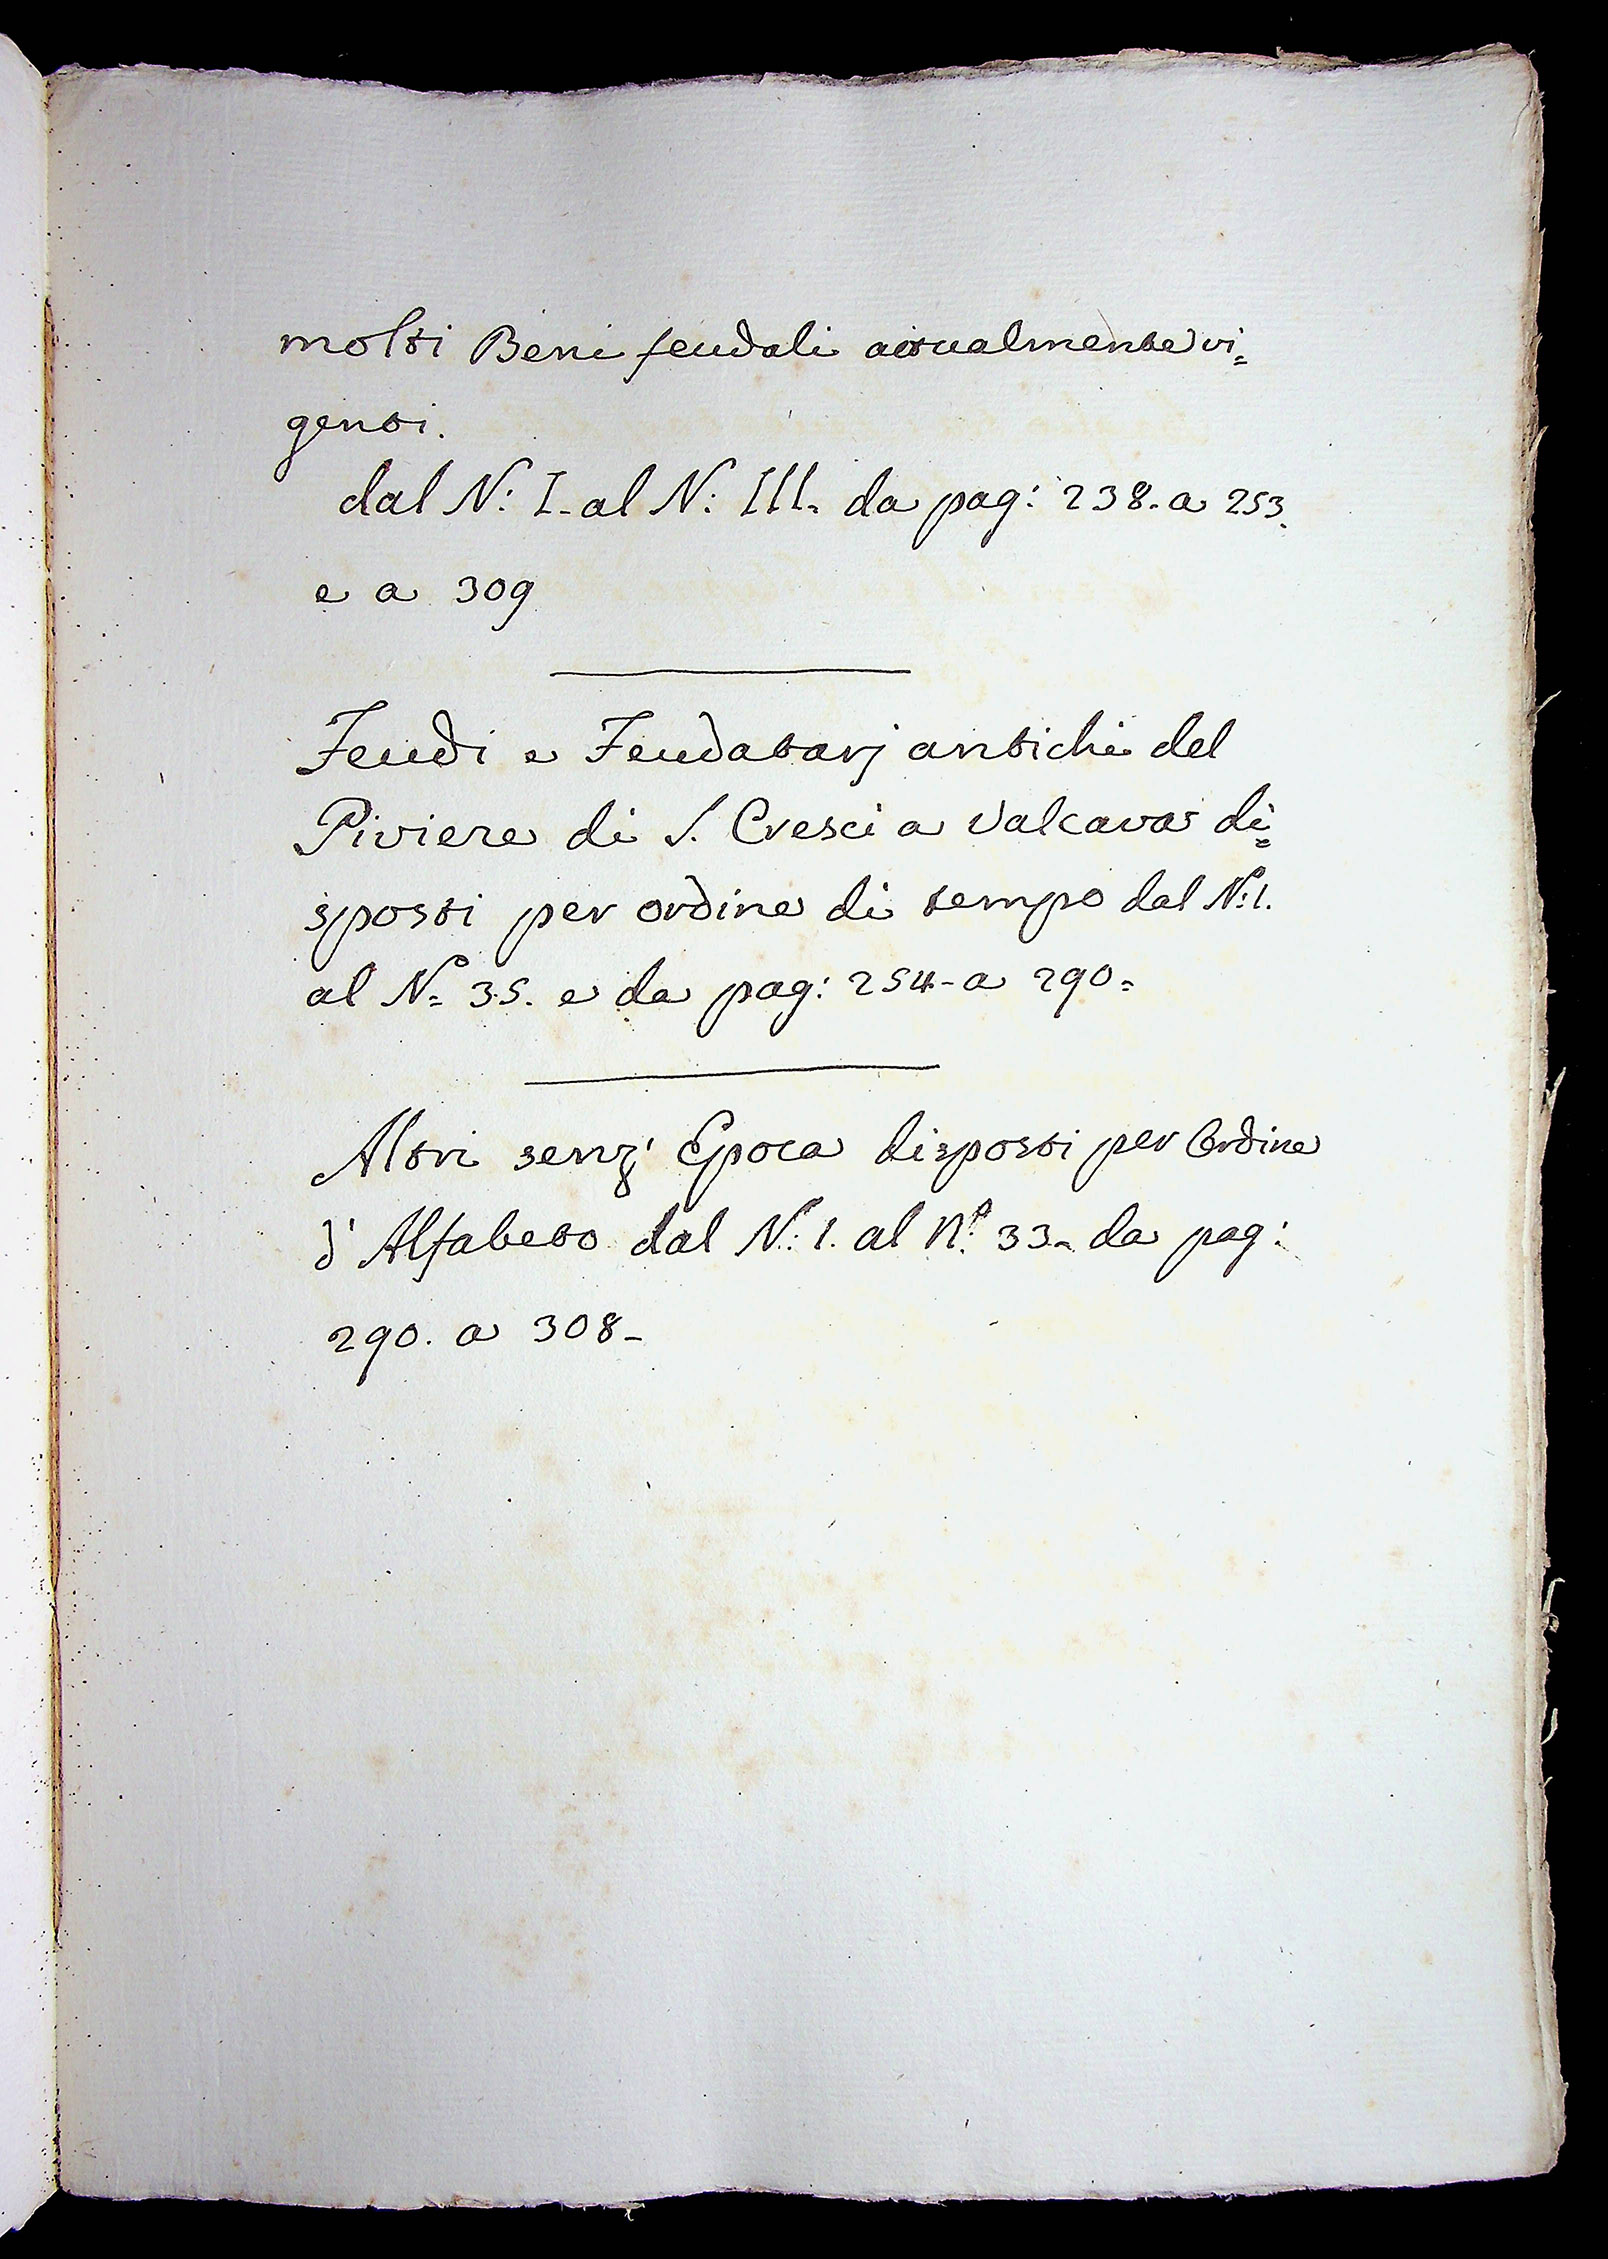 molti Beni feudali attualmente vi=
genti.
dal N: I. al N: III. da pag: 238. a 253.
e a 309
Feudi e Feudatarj antichi del
Piviere di S. Cresci a Valcava di=
sposti per ordine di tempo dal N: 1.
al N.º 35. e da pag: 254. a 290.
Altri senz' Epoca disposti per Ordine
d' Alfabeto dal N: 1. al N.º 33. da pag:
290. a 308.